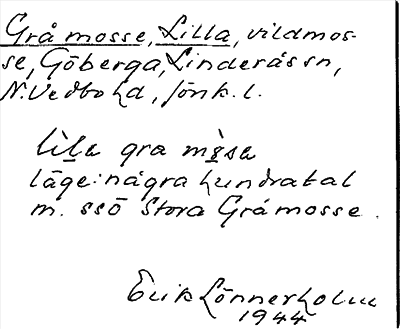 Grå mosse, Lilla, vildmos-
se, Göberga, Linderås sn,
N. Vedbo hd, Jönk. l.
lìla gra mosa
läge: några hundratal
m. ssö Stora Gråmosse.
Erik Lönnerholm
1944